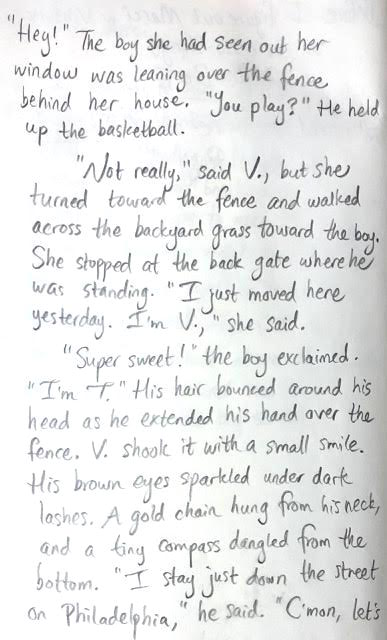 "Hey!" The boy she had seen out her
window was leaning over the fence
behind her house. "You play?" He held
up the basketball.
"Not really," said V., but she
turned toward the fence and walked
across the backyard grass toward the boy.
She stopped at the back gate where he
was standing. "I just moved here
yesterday. I'm V.," she said.
"Super sweet!" the boy exclaimed.
"I'm T." His hair bounced around his
head as he extended his hand over the
fence. V. shook it with a small smile.
His brown eyes sparkled under dark
lashes. A gold chain hung from his neck,
and a tiny compass dangled from the
bottom. "I stay just down the street
on Philadelphia," he said. "C'mon, let's